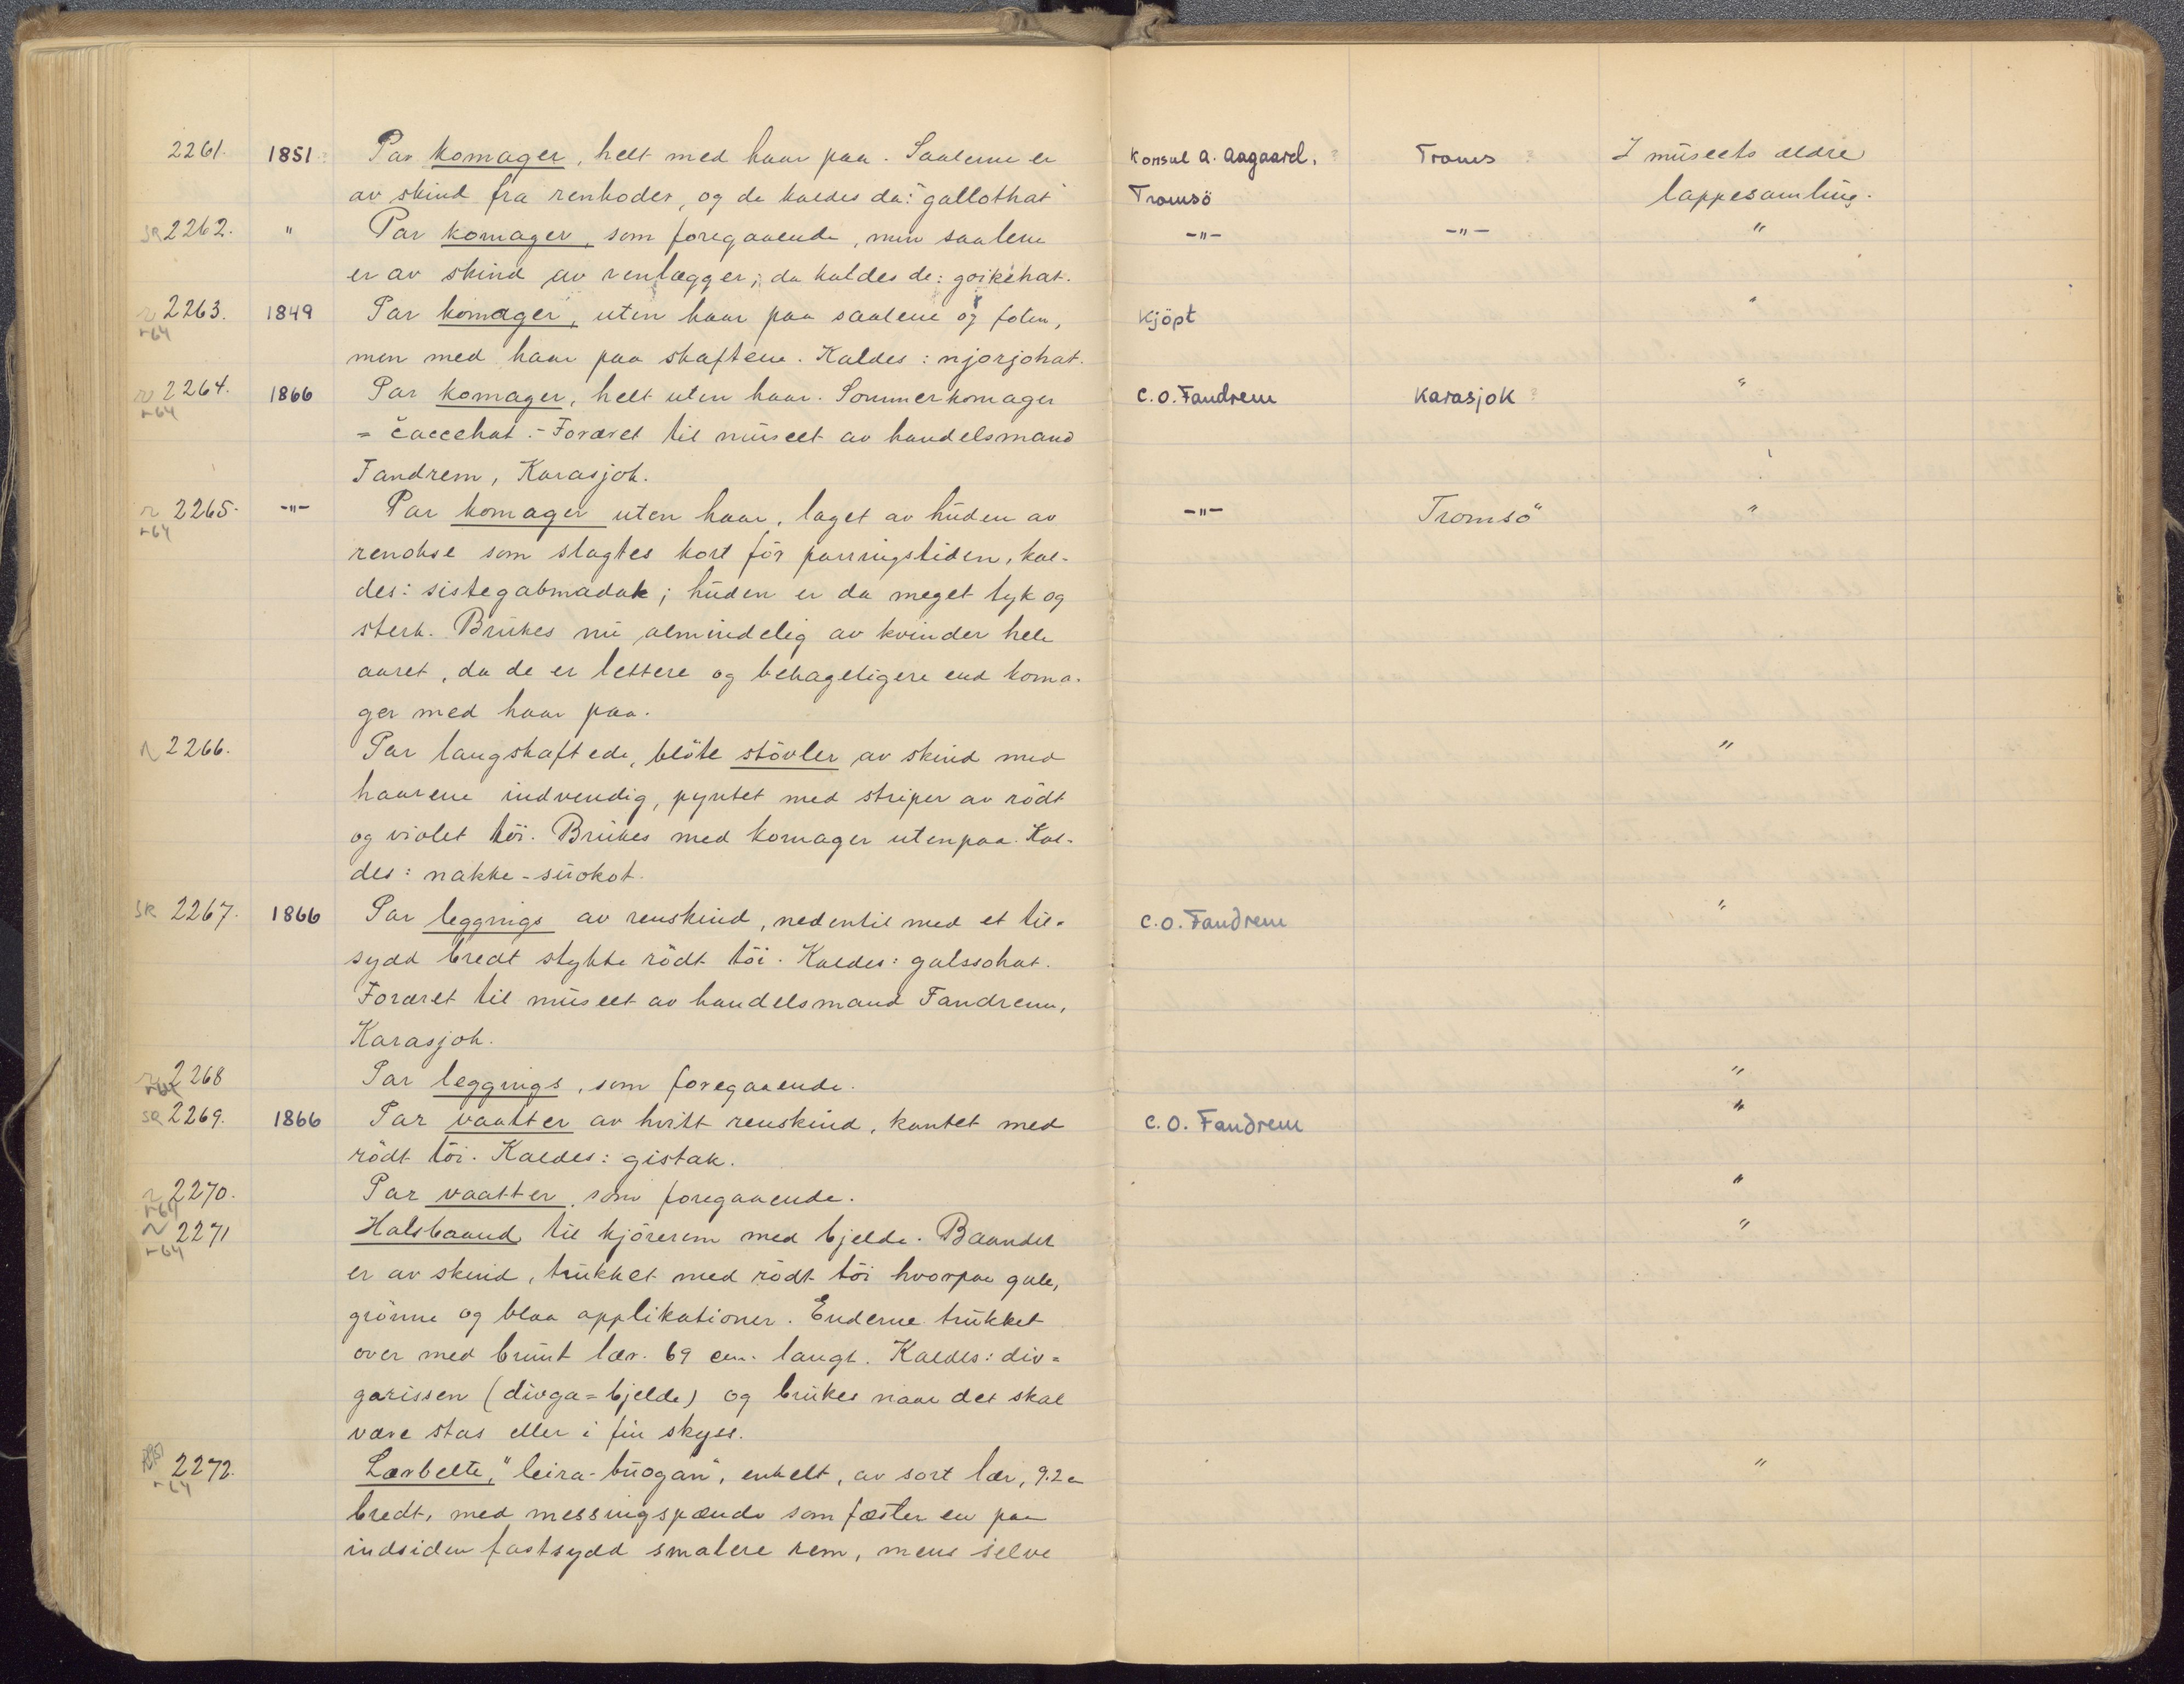 2261. 1851 Par komager, helt med haar paa. Saalerne er Konsul A. Aagaard, Troms I museets ældre
av skind fra renhoder, og de kaldes da: "gallothat" Tromsö lappesamling.
sa 2262. " Par komager, som foregaaende, men saalene -"- -"- "
er av skind av renlægger; da kaldes de: goikehat.
r 2263. 1849 Par komager, uten haar paa saalene og foten, Kjöpt "
r64 men med haar paa skaftene. Kaldes: njorjohat.
r 2264. 1866 Par komager, helt uten haar. Sommerkomager C.O. Fandrem Karasjok "
r64 = čaccehat. - Foræret til museet av handelsmand
Fandrem, Karasjok.
r 2265. -"- Par komager uten haar, laget av huden av -"- Tromsö "
r64 renokse som slagtes kort för parringstiden, kal-
des: sistegabmadak; huden er da meget tyk og
sterk. Brukes nu almindelig av kvinder hele
aaret, da de er lettere og behageligere end koma-
ger med haar paa.
r 2266. Par langskaftede, blöte stövler av skind med "
haarene indvendig, pyntet med striper av rödt
og violet töi. Brukes med komager utenpaa. Kal-
des: nakke-suokot.
sa 2267. 1866 Par leggings av renskind, nedentil med et til- C.O. Fandrem "
sydd bredt stykke rödt töi. Kaldes: galssohat.
Foræret til museet av handelsmand Fandrem,
Karasjok.
r 2268 Par leggings, som foregaaende. "
r64
sa 2269. 1866 Par vaatter av hvitt renskind, kantet med C.O. Fandrem "
rödt töi. Kaldes: gistak.
r 2270. Par vaatter, som foregaaende. "
r64
r 2271 Halsbaand til kjöreren med bjelde. Baandet "
r64 er av skind, trukket med rödt töi hvorpaa gule,
grönne og blaa applikationer. Enderne trukket
over med brunt lær. 69 cm. langt. Kaldes: div-
garissen (divga=bjelde) og brukes naar det skal
være stas eller i fin skyss.
2272. Lærbelte, "leira-buogan", enkelt, av sort lær, 9.2 "
r64 bredt, med messingspænde som fæster en paa
indsiden fastsydd smalere rem, mens selve